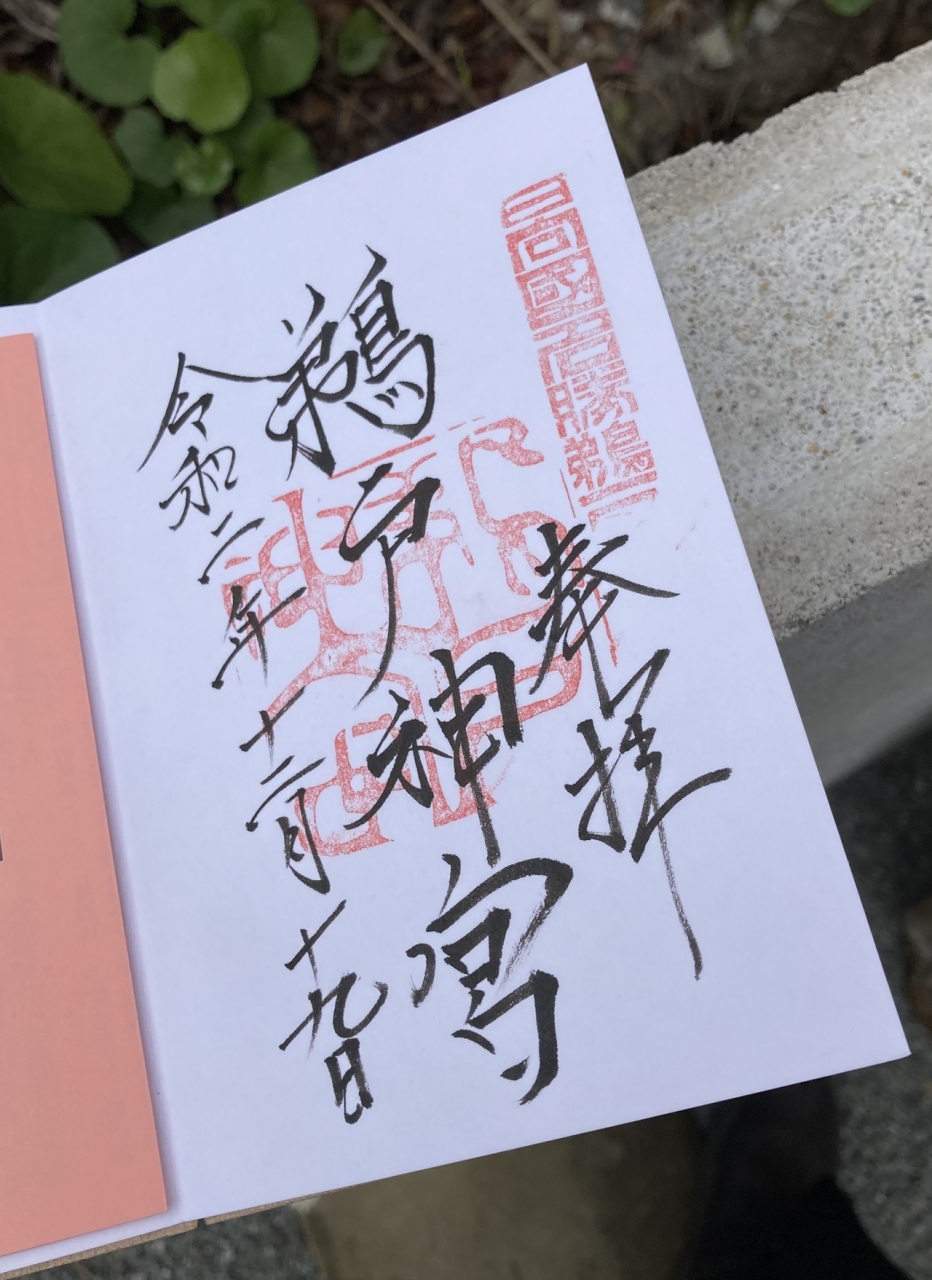 日向國名勝鵜戸
奉拝
鵜戸神宮
令和二年十二月十九日